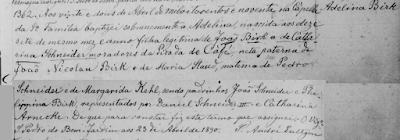 1362. Aos vinte e dous de Abril de mil oitocentos e noventa, na Capella
da Sª Familia baptizei solemnemente a Adelina, nascida aos deze
sete do mesmo mez e anno, filha legitima de João Birk e de Catha
rina Schneider moradores da Picada do Café, neta paterna de
João Nicolau Birk e de Maria Staud, materna de Pedro
Adelina Birk
Schneider e de Margarida Kehl, sendo padrinhos João Schneider e Phi
lippina Birk, representados por Daniel Schneider III e Catharina
Arnecke. De que para constar fiz este termo que assignei.
S. Pedro do Bom Jardim aos 23 de Abril de 1890. P. André